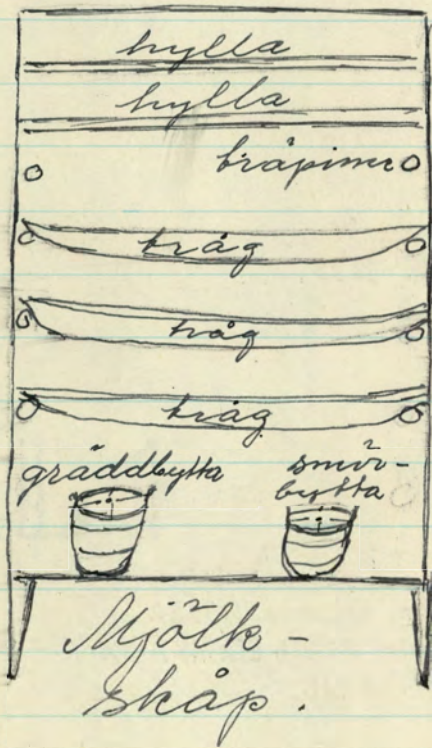 hylla
hylla
träpinne
tråg
tråg
tråg
gräddbytta
smör-
bytta
Mjölk-
skåp.